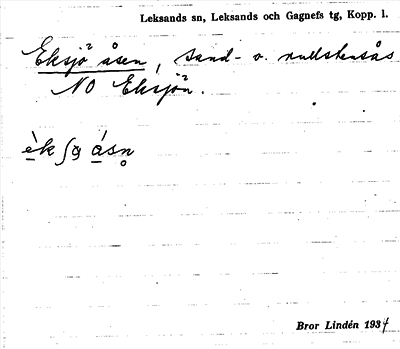 Leksands sn, Leksands och Gagnefs tg, Kopp. l.
Eksjö åsen, sand- o. rullstensås
NO Eksjön.
Bror Lindén 1934